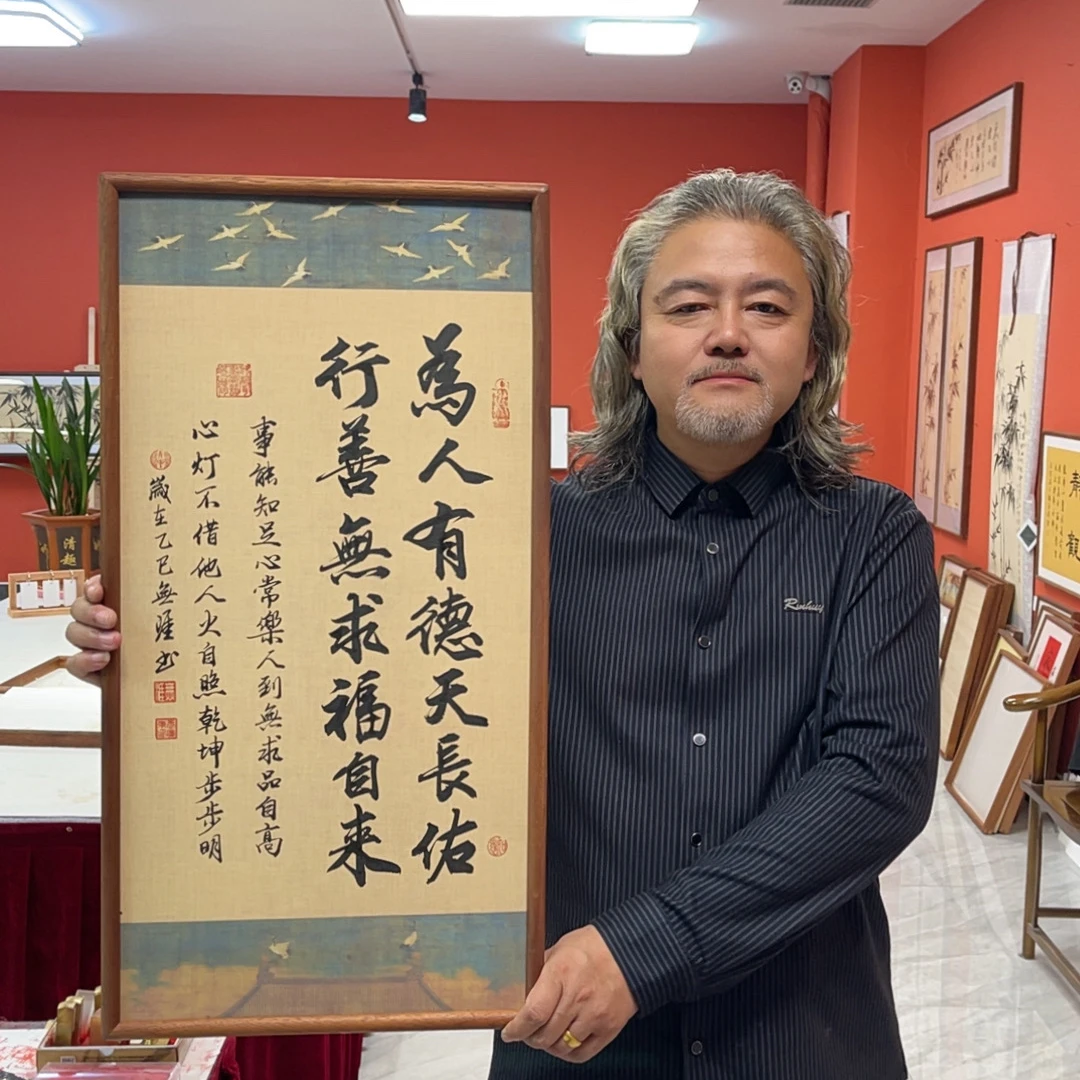 為人有德天長佑
行善無求福自来
事能知足心常樂人到無求品自高
心灯不借他人火自照乾坤步步明
歲在乙巳無涯书
清趣
青龍